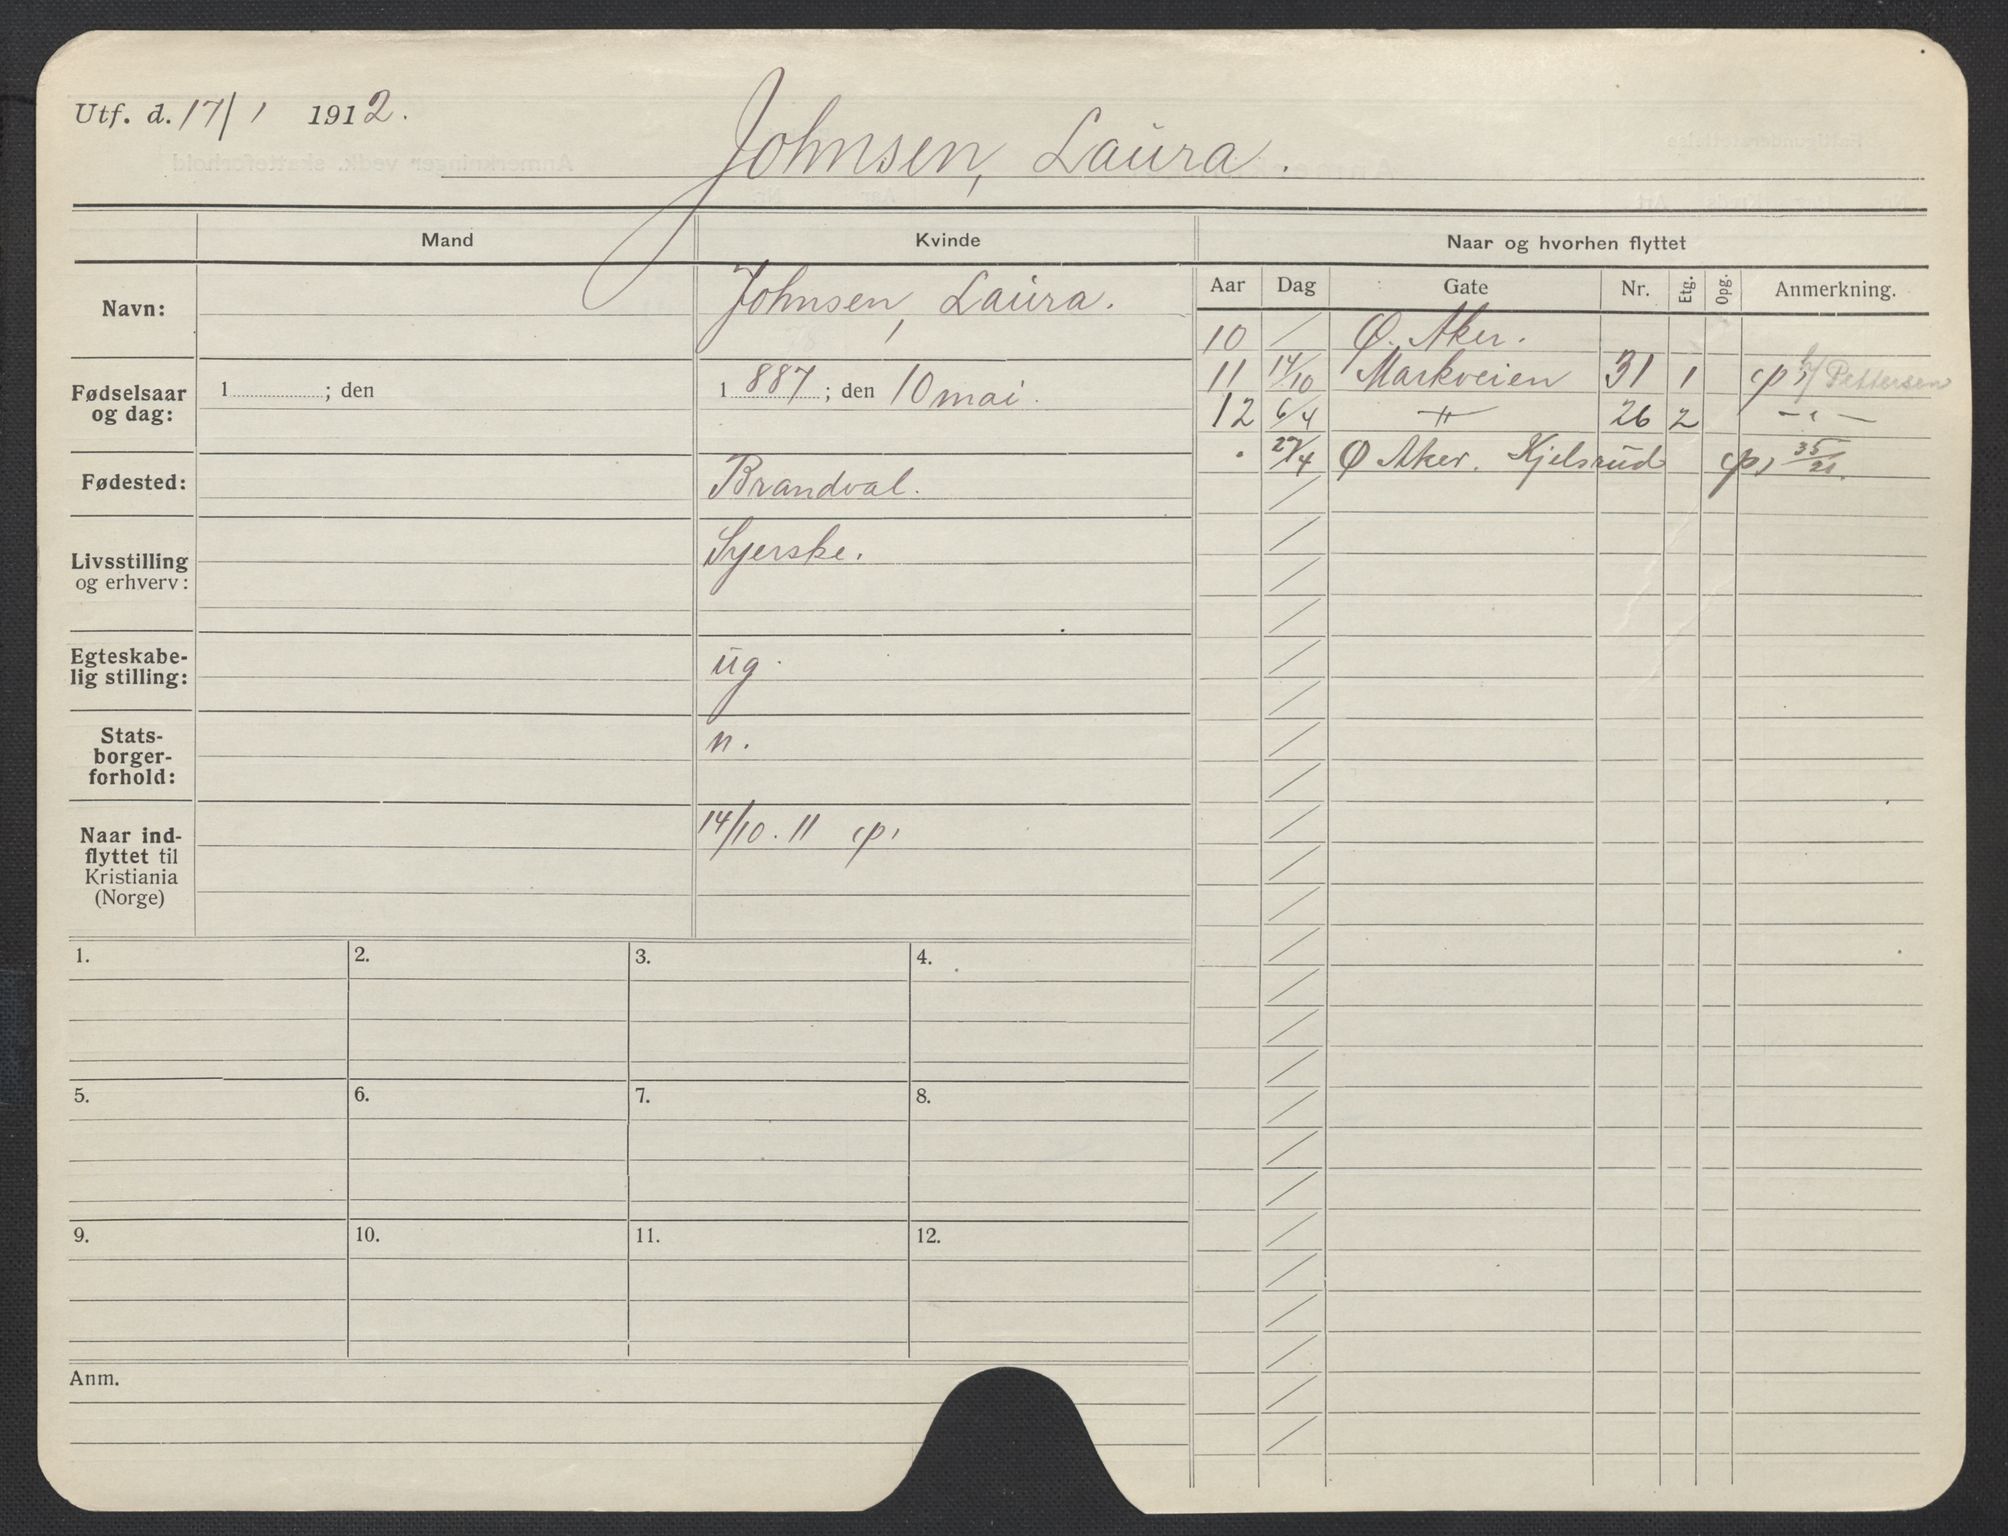 Utf. d. 17/1 1912.
Johnsen, Laura.
Mand Kvinde Naar og hvorhen flyttet
Aar Dag Gate Nr. Etg. Opg. Anmerkning.
Navn: Johnsen, Laura.
10 Ø. Aker.
11 14/10 Markveien 31 1 cp, h/ Pettersen
12 6/4 — " — 26 2 — " —
" 27/4 Ø Aker. Kjelsrud cp, 35/21.
Fødselsaar
og dag:
1 ; den 1 887 ; den 10 mai.
Fødested: Brandval.
Livsstilling
og erhverv:
Syerske.
Egteskabe-
lig stilling:
ug.
Stats-
borger-
forhold:
n.
Naar ind-
flyttet til
Kristiania
(Norge)
14/10. 11 cp,
1. 2. 3. 4.
5. 6. 7. 8.
9. 10. 11. 12.
Anm.